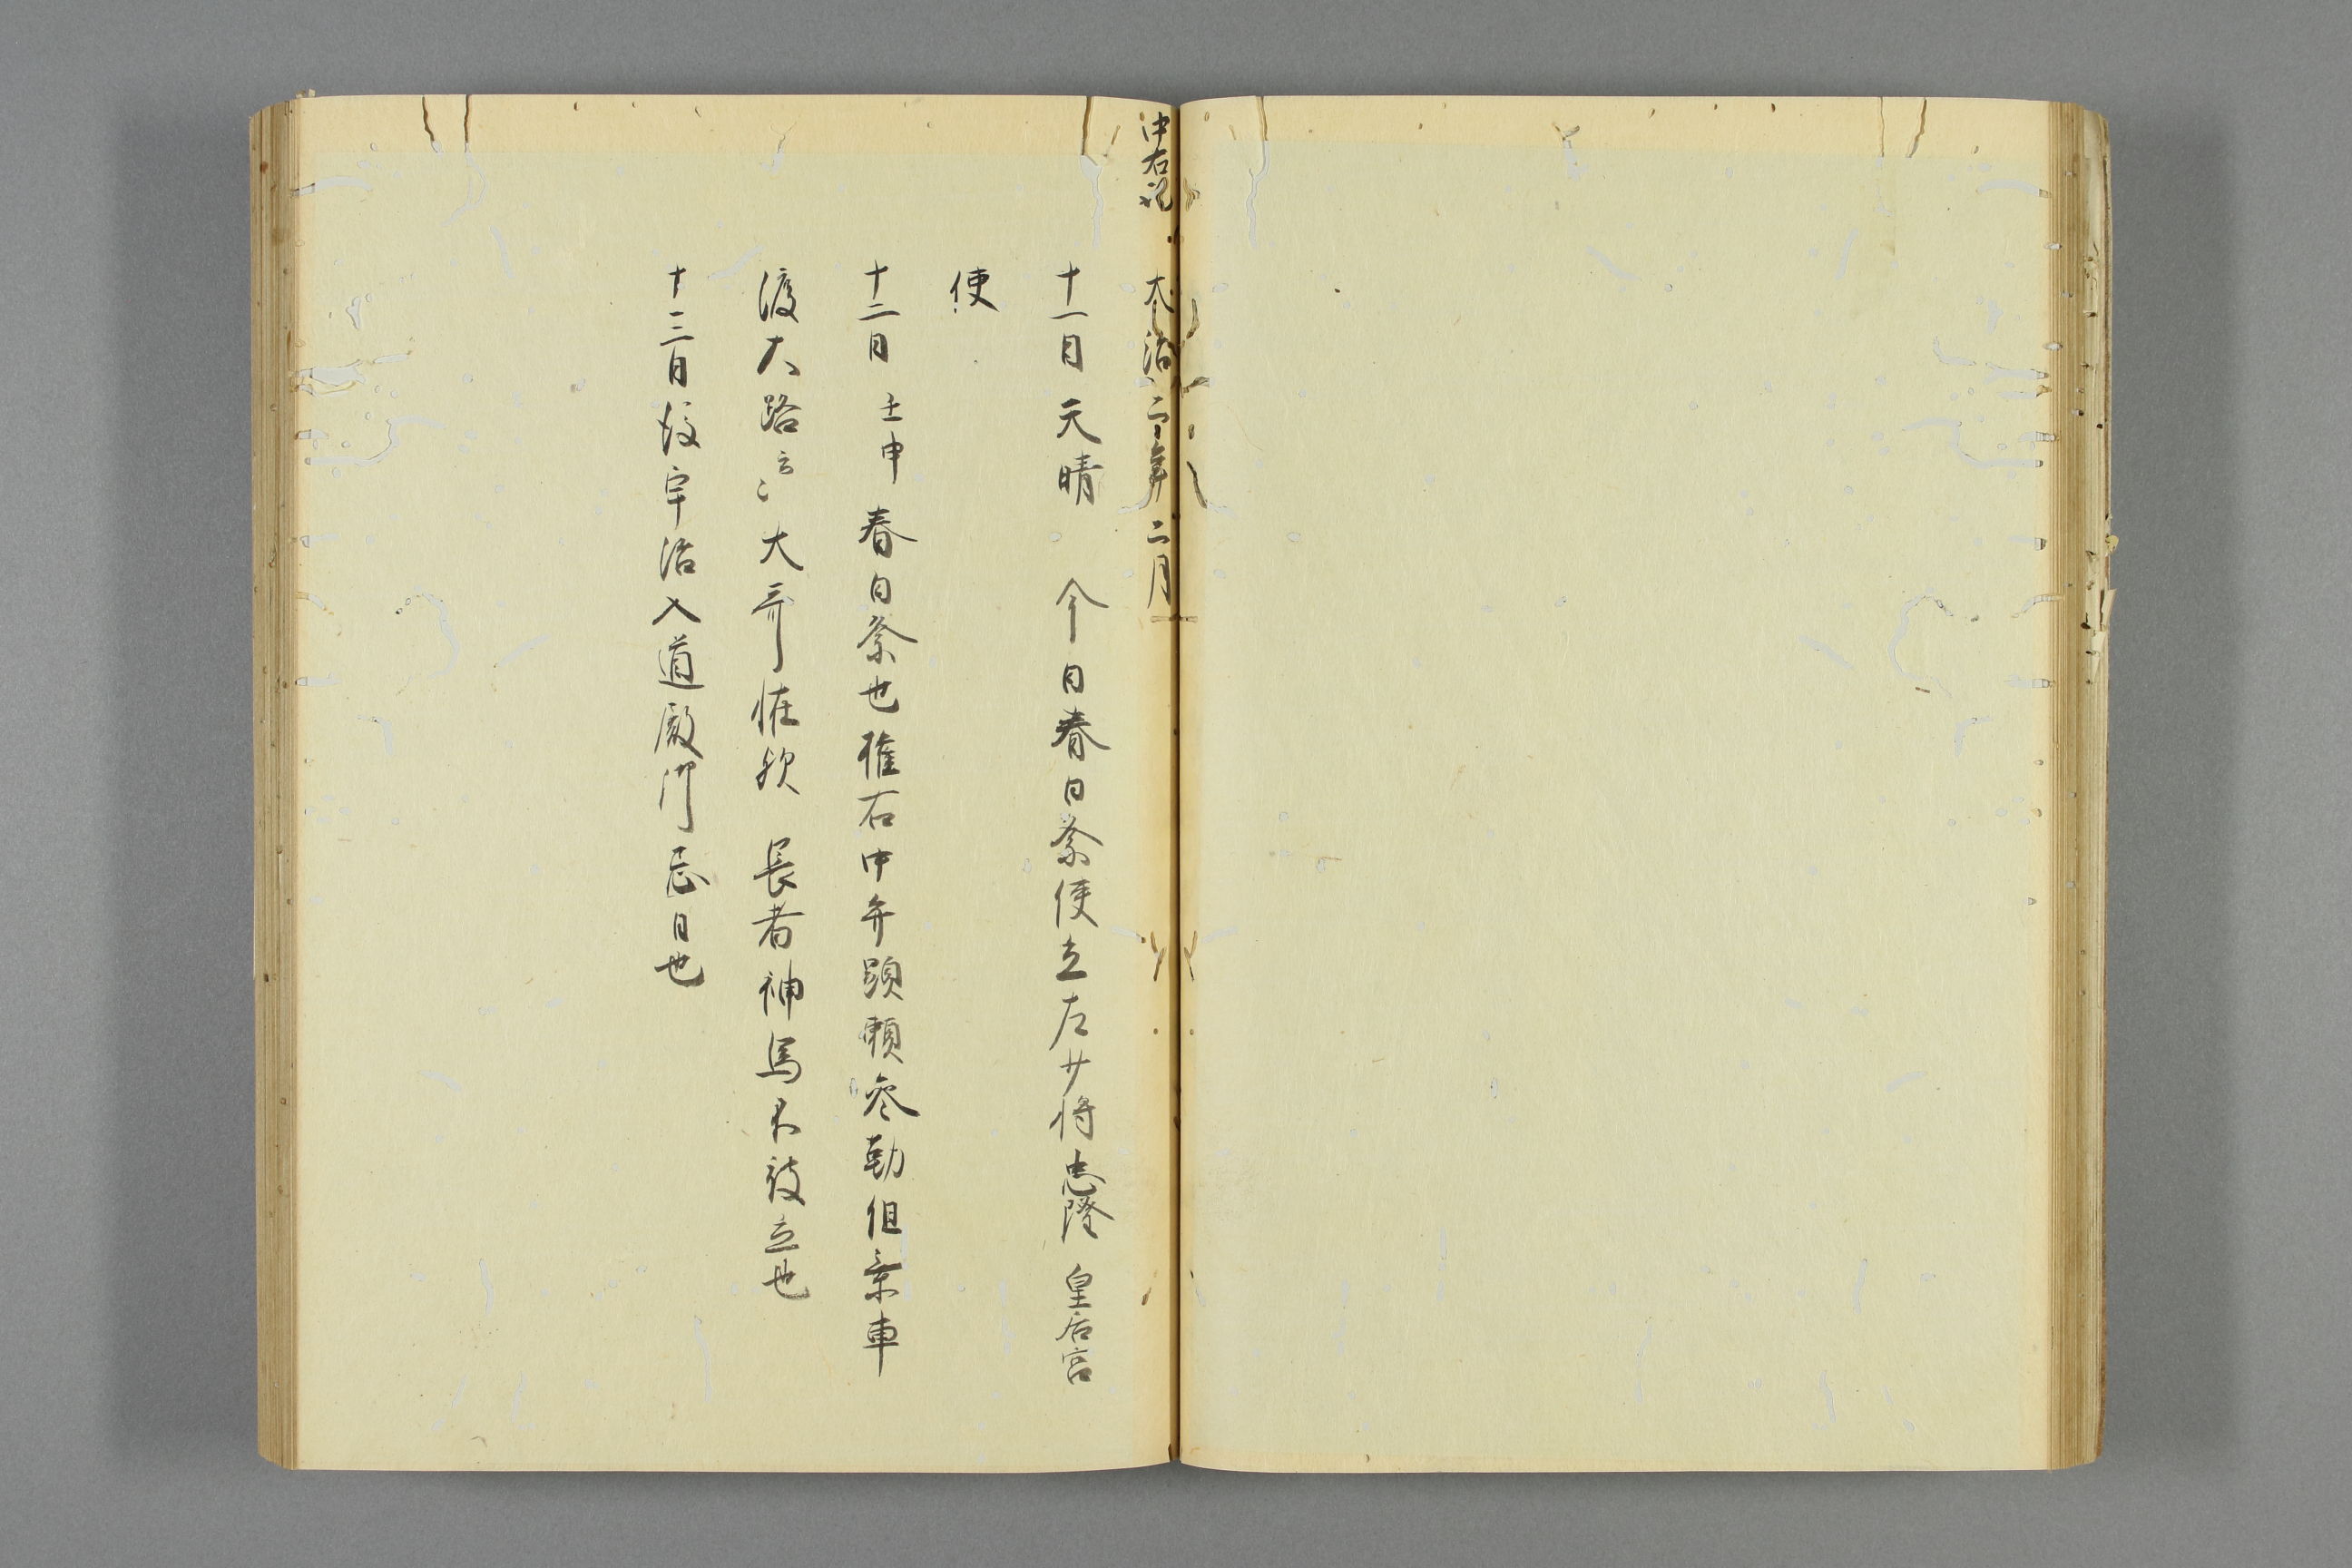 中右記 大治二年二月
十一日天晴 今日春日祭使立左少将忠隆 皇后宮
使
十二日 壬申 春日祭也権右中弁顕頼参勤但乗車
渡大路云々大奇恠歟 長者神馬不被立也
十三日故宇治入道殿御忌日也